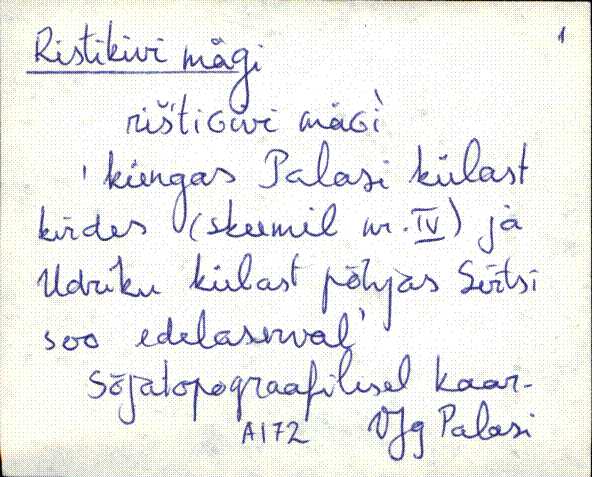 1
Ristikivi mägi
rišti͔Givi mäGì
'küngas Palasi külast
kirdes (skeemil nr. IV) ja
Udriku külast põhjas Sirtsi
soo edelaserval'
Sõjatopograafilisel kaar-
A172 VJg Palasi